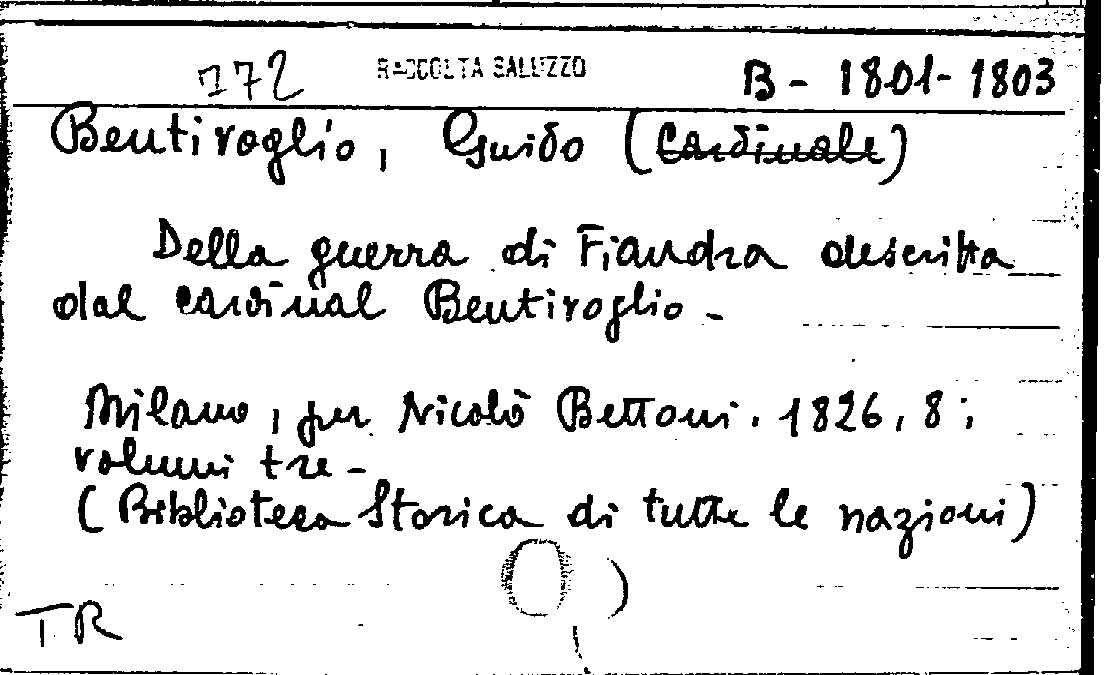 172 RACCOLTA SALUZZO B - 1801-1803
Bentivoglio, Guido (Cardinale)
Della guerra di Fiandra descritta
dal cardinal Bentivoglio -
Milano, per Nicolò Bettoni. 1826, 8°;
volumi tre -
(Biblioteca Storica di tutte le nazioni)
TR